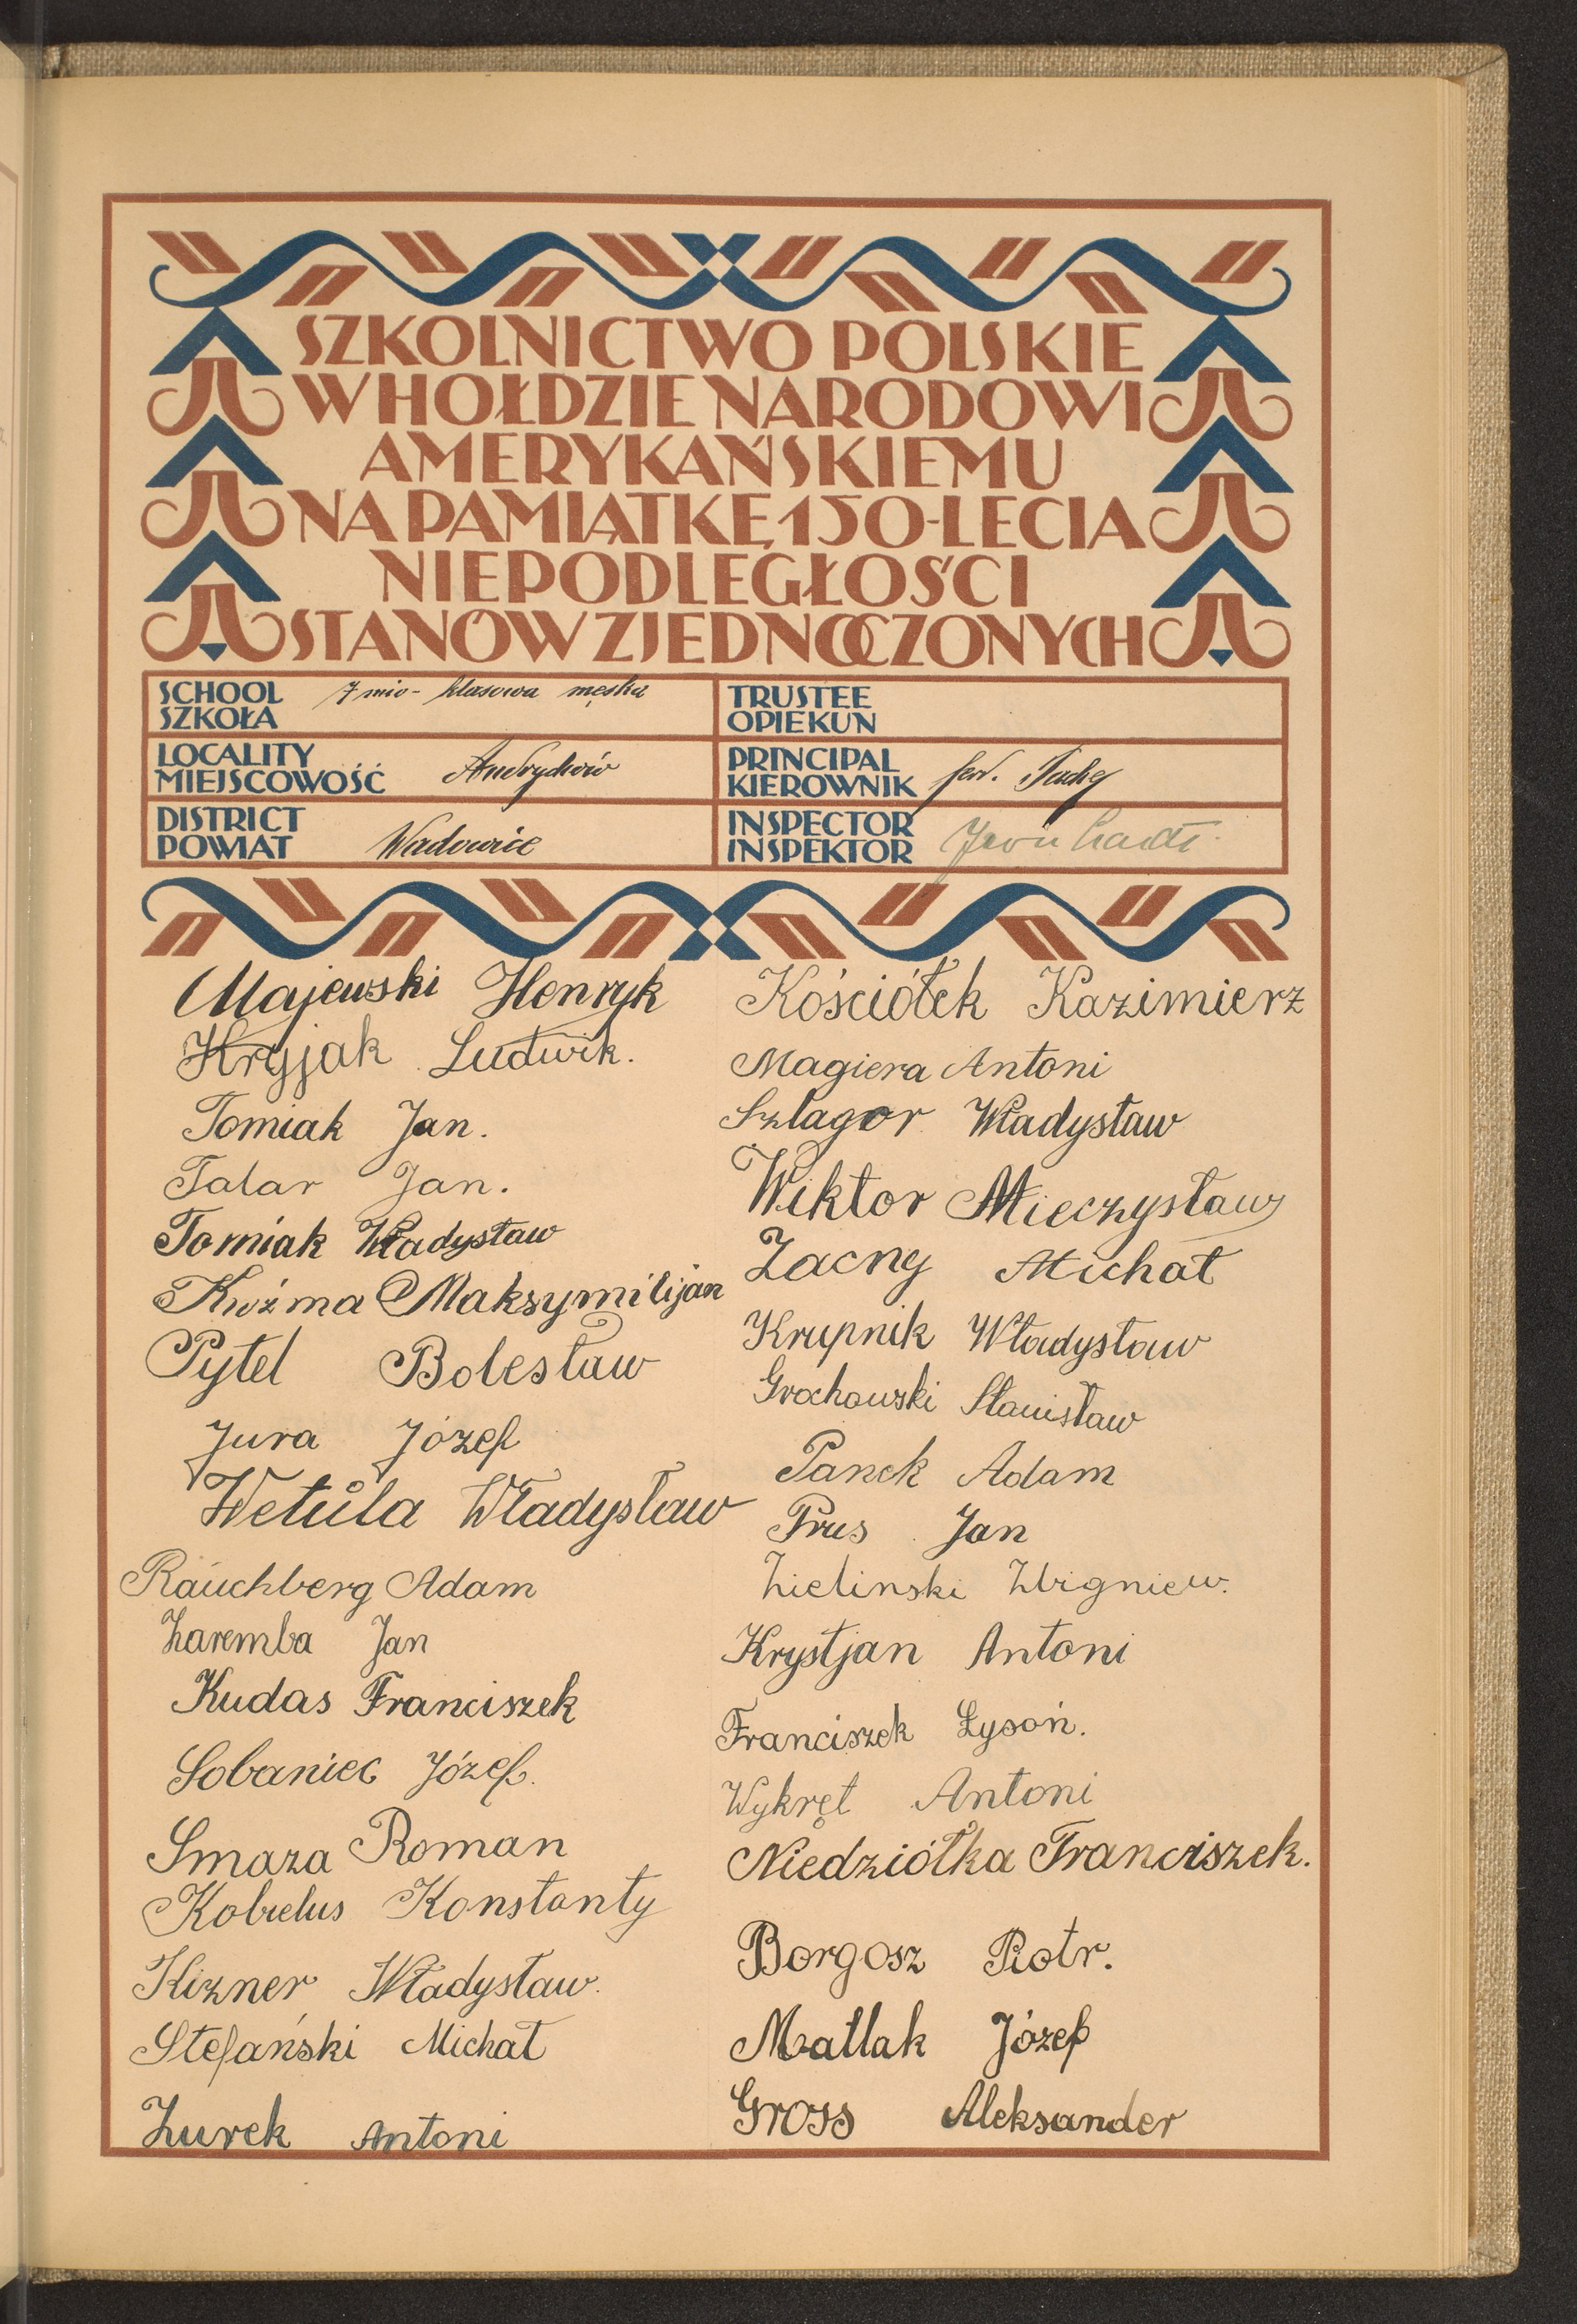 SZKOLNICTWO POLSKIE
W HOŁDZIE NARODOWI
AMERYKAŃSKIEMU
NA PAMIĄTKĘ 150-LECIA
NIEPODLEGŁOŚCI
STANÓW ZJEDNOCZONYCH
SCHOOL
SZKOŁA
7 mio- klasowa męska
TRUSTEE
OPIEKUN
LOCALITY
MIEJSCOWOŚĆ
Andrychów
PRINCIPAL
KIEROWNIK
DISTRICT
POWIAT
Wadowice
INSPECTOR
INSPEKTOR
Majewski Henryk
Kryjak Ludwik.
Tomiak Jan.
Talar Jan.
Tomiak Władysław
Kuźma Maksymilijan
Pytel Bolesław
Jura Józef
Wetula Władysław
Rauchberg Adam
Zaremba Jan
Kudas Franciszek
Sobaniec Józef.
Smaza Roman
Kobielus Konstanty
Kizner Władysław.
Stefański Michał
Żurek Antoni
Kościółek Kazimierz
Magiera Antoni
Szlagor Władysław
Wiktor Mieczysław
Zacny Michał
Krupnik Władysław
Grochowski Stanisław
Panek Adam
Prus Jan
Zielinski Zbigniew.
Krystjan Antoni
Franciszek Łysoń.
Wykręt Antoni
Niedziółka Franciszek.
Borgosz Piotr.
Matlak Józef
Gross Aleksander